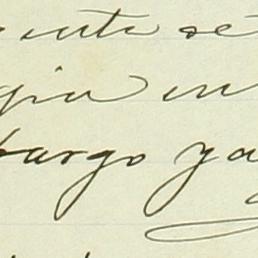 ente se
gia en
bargo ya